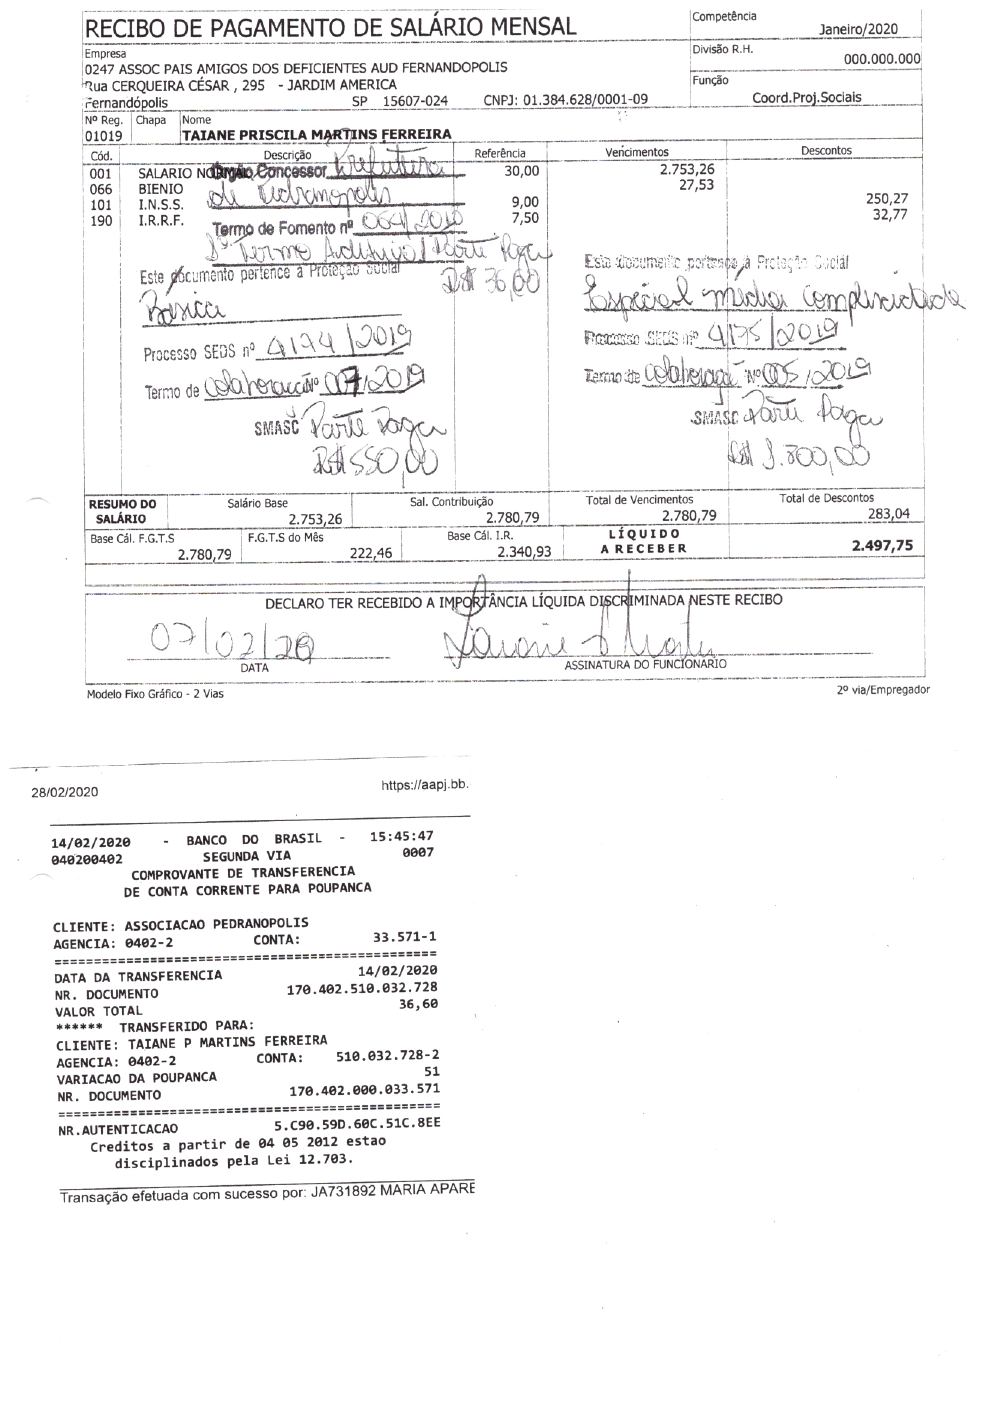 RECIBO DE PAGAMENTO DE SALÁRIO MENSAL
Competência
Janeiro/2020
Empresa
0247 ASSOC PAIS AMIGOS DOS DEFICIENTES AUD FERNANDOPOLIS
Rua CERQUEIRA CÉSAR , 295 - JARDIM AMERICA
Fernandópolis SP 15607-024 CNPJ: 01.384.628/0001-09
Divisão R.H.
000.000.000
Função
Coord.Proj.Sociais
Nº Reg. Chapa Nome
01019 TAIANE PRISCILA MARTINS FERREIRA
Cód. Descrição Referência Vencimentos Descontos
001 SALARIO NORMAL 30,00 2.753,26
066 BIENIO 27,53
101 I.N.S.S. 9,00 250,27
190 I.R.R.F. 7,50 32,77
Órgão Concessor Prefeitura
de Pedranopolis
Termo de Fomento nº 064/2019
1º Termo Aditivo/Parte Paga
R$ 36,00
Este documento pertence à Proteção Social
Básica
Processo SEDS nº 4174/2019
Termo de Colaboração Nº 007/2019
SMASC Parte Paga
R$ 550,00
Este documento pertence à Proteção Social
Especial média Complexidade
Processo SEDS nº 4175/2019
Termo de Colaboração Nº 005/2019
SMASC Parte Paga
R$ 1.800,00
RESUMO DO SALÁRIO
Salário Base Sal. Contribuição Total de Vencimentos Total de Descontos
2.753,26 2.780,79 2.780,79 283,04
Base Cál. F.G.T.S F.G.T.S do Mês Base Cál. I.R. LÍQUIDO A RECEBER
2.780,79 222,46 2.340,93 2.497,75
DECLARO TER RECEBIDO A IMPORTÂNCIA LÍQUIDA DISCRIMINADA NESTE RECIBO
07/02/20
DATA ASSINATURA DO FUNCIONARIO
Modelo Fixo Gráfico - 2 Vias 2º via/Empregador
28/02/2020 https://aapj.bb.
14/02/2020 - BANCO DO BRASIL - 15:45:47
040200402 SEGUNDA VIA 0007
COMPROVANTE DE TRANSFERENCIA
DE CONTA CORRENTE PARA POUPANCA
CLIENTE: ASSOCIACAO PEDRANOPOLIS
AGENCIA: 0402-2 CONTA: 33.571-1
================================================
DATA DA TRANSFERENCIA 14/02/2020
NR. DOCUMENTO 170.402.510.032.728
VALOR TOTAL 36,60
****** TRANSFERIDO PARA:
CLIENTE: TAIANE P MARTINS FERREIRA
AGENCIA: 0402-2 CONTA: 510.032.728-2
VARIACAO DA POUPANCA 51
NR. DOCUMENTO 170.402.000.033.571
================================================
NR.AUTENTICACAO 5.C90.59D.60C.51C.8EE
Creditos a partir de 04 05 2012 estao
disciplinados pela Lei 12.703.
Transação efetuada com sucesso por: JA731892 MARIA APARE